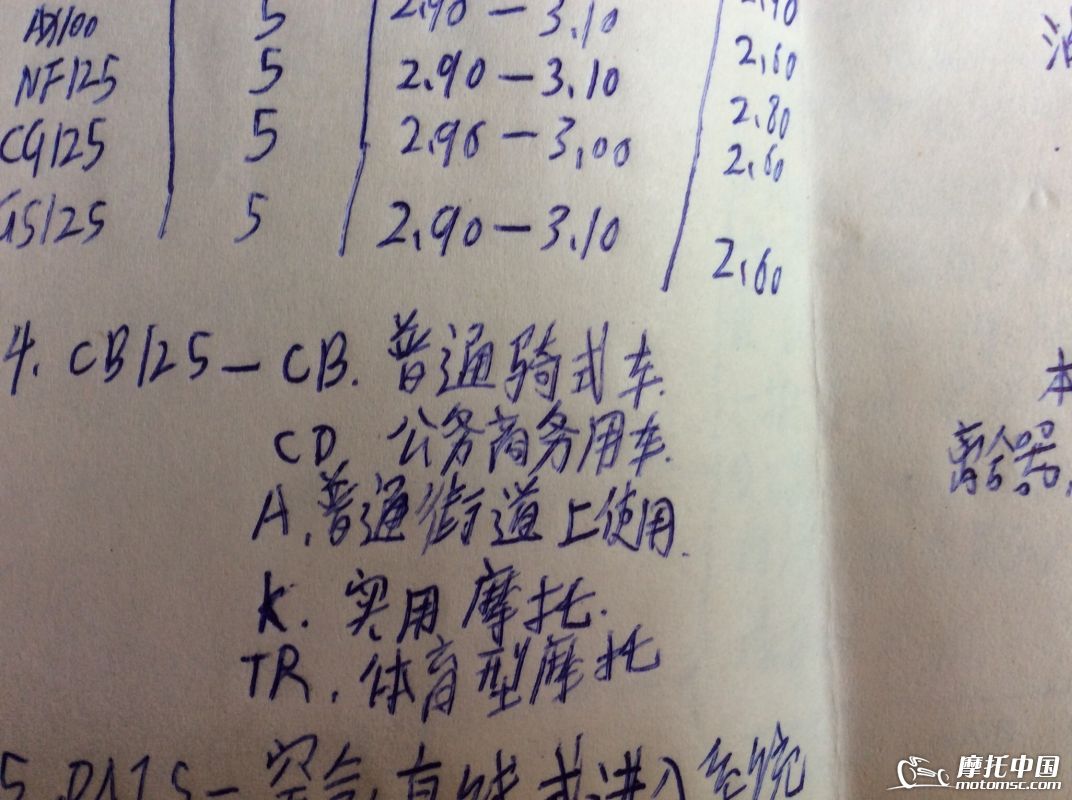 5 2.90-3.10
NF125 5 2.90-3.10 2.60
CG125 5 2.90-3.00 2.80
2.60
GS125 5 2.90-3.10
2.60
4. CB125-CB. 普通骑式车.
CD. 公务商务用车.
A. 普通街道上使用.
K. 实用摩托.
TR. 体育型摩托
5. 空气直线式进入系统
油
本
离合器.
摩托中国
motomsc.com